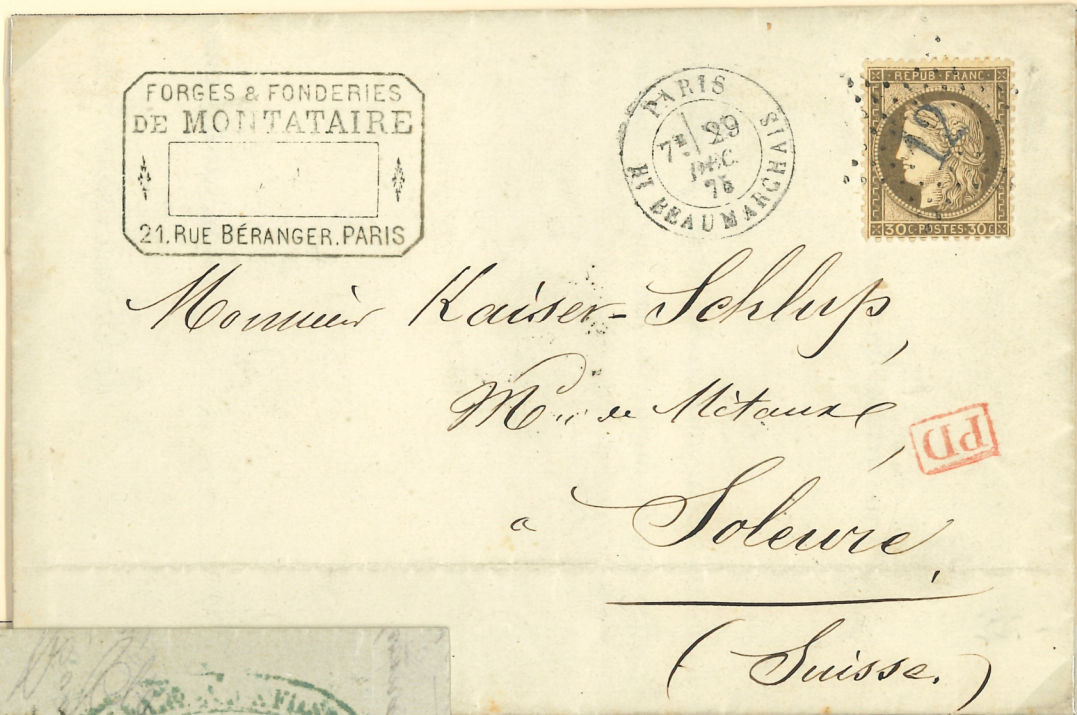 FORGES & FONDERIES
DE MONTATAIRE
21. RUE BÉRANGER. PARIS
PARIS
7E 29
DEC.
75
Bt BEAUMARCHAIS
REPUB. FRANC.
12
30c POSTES 30c
Monsieur Kaiser-Schlup,
Md de Métaux,
PD
a Soleure,
(Suisse.)
Fils